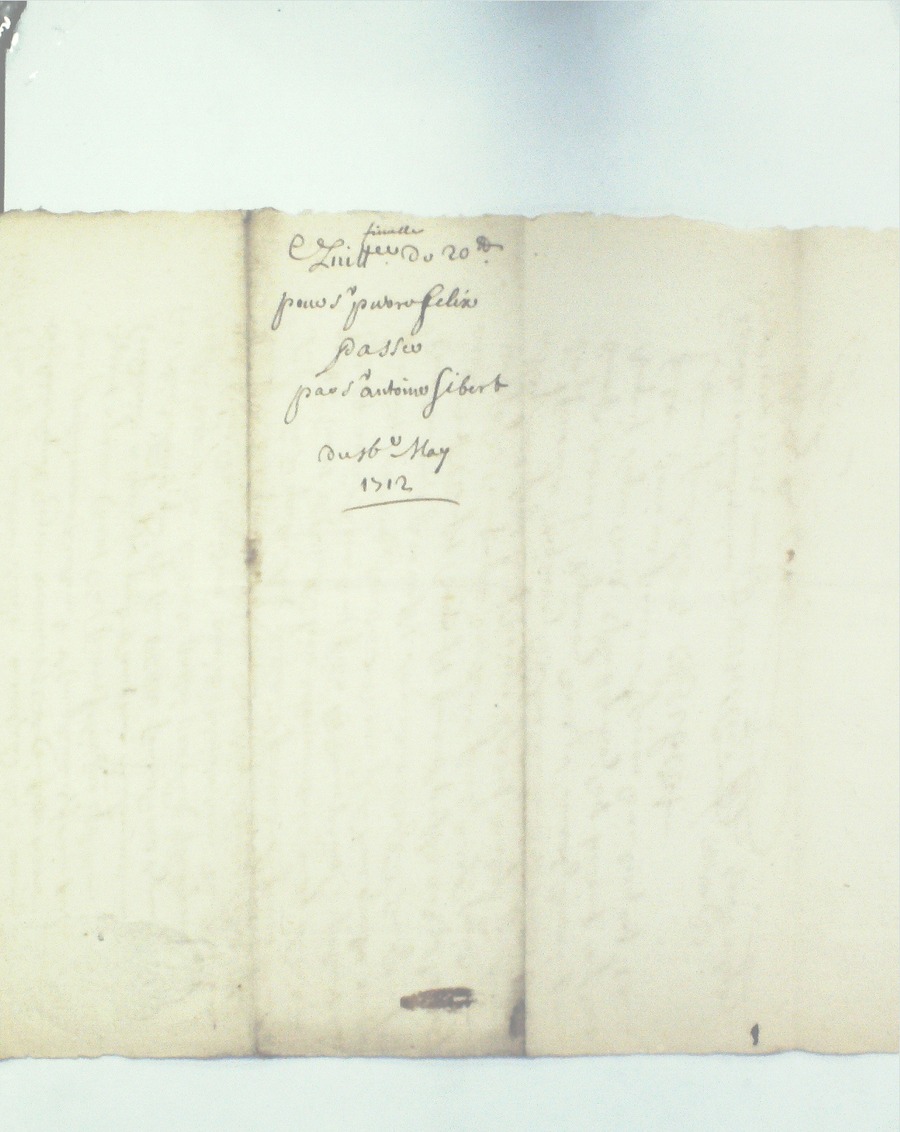 finalle
Quittce de 20 tt
pour sr pierre felix
passee
par sr antoine Gibert
du 16e May
1712